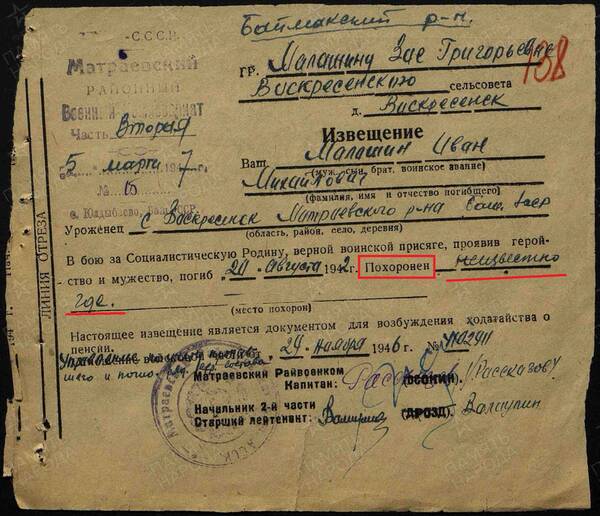 Баймакский р-н.
С.С.С.Р.
138
Матраевский
гр. Малашину Зае Григорьевне
РАЙОННЫЙ
Воскресенского сельсовета
Военный Комиссариат
д. Воскресенск
Часть Вторая
Извещение
5 марта 1947 г.
Ваш Малашин Иван
(муж, сын, брат, воинское звание)
№ 15
Михайлович
(фамилия, имя и отчество погибшего)
с. Юлдыбаево, Баш.АССР
Уроженец с Воскресенск Матраевского р-на Баш. АССР
(область, район, село, деревня)
В бою за Социалистическую Родину, верной воинской присяге, проявив герой-
ство и мужество, погиб 20 августа 1942. Похоронен неизвестно
где.
(место похорон)
Настоящее извещение является документом для возбуждения ходатайства о
пенсии.
29 ноября 1946 г. №
Матраевский Райвоенком
Капитан: (ОСОКИН) /Рассказов/
Начальник 2-й части
Старший лейтенант: (ДРОЗД)
ЛИНИЯ ОТРЕЗА
ПАМЯТЬ НАРОДА